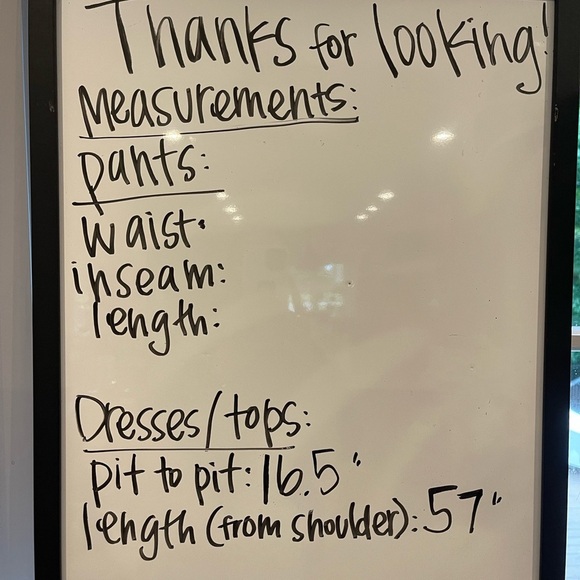 Thanks for looking!
Measurements:
pants:
waist:
inseam:
length:
Dresses/tops:
pit to pit: 16.5"
length (from shoulder): 57"